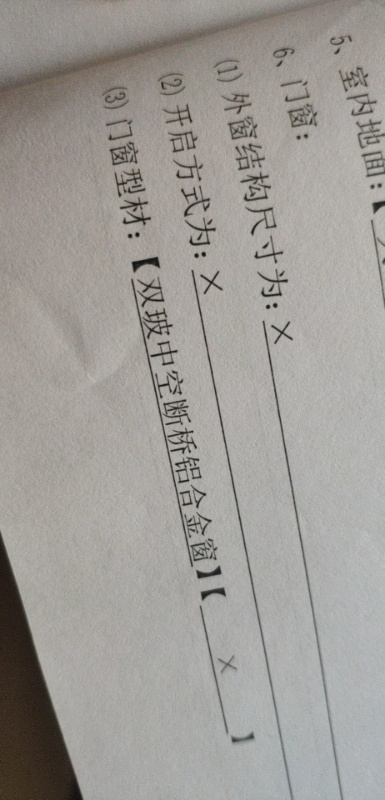 5、室内地面：【
6、门窗：
(1) 外窗结构尺寸为：×
(2) 开启方式为：×
(3) 门窗型材：【双玻中空断桥铝合金窗】【 × 】